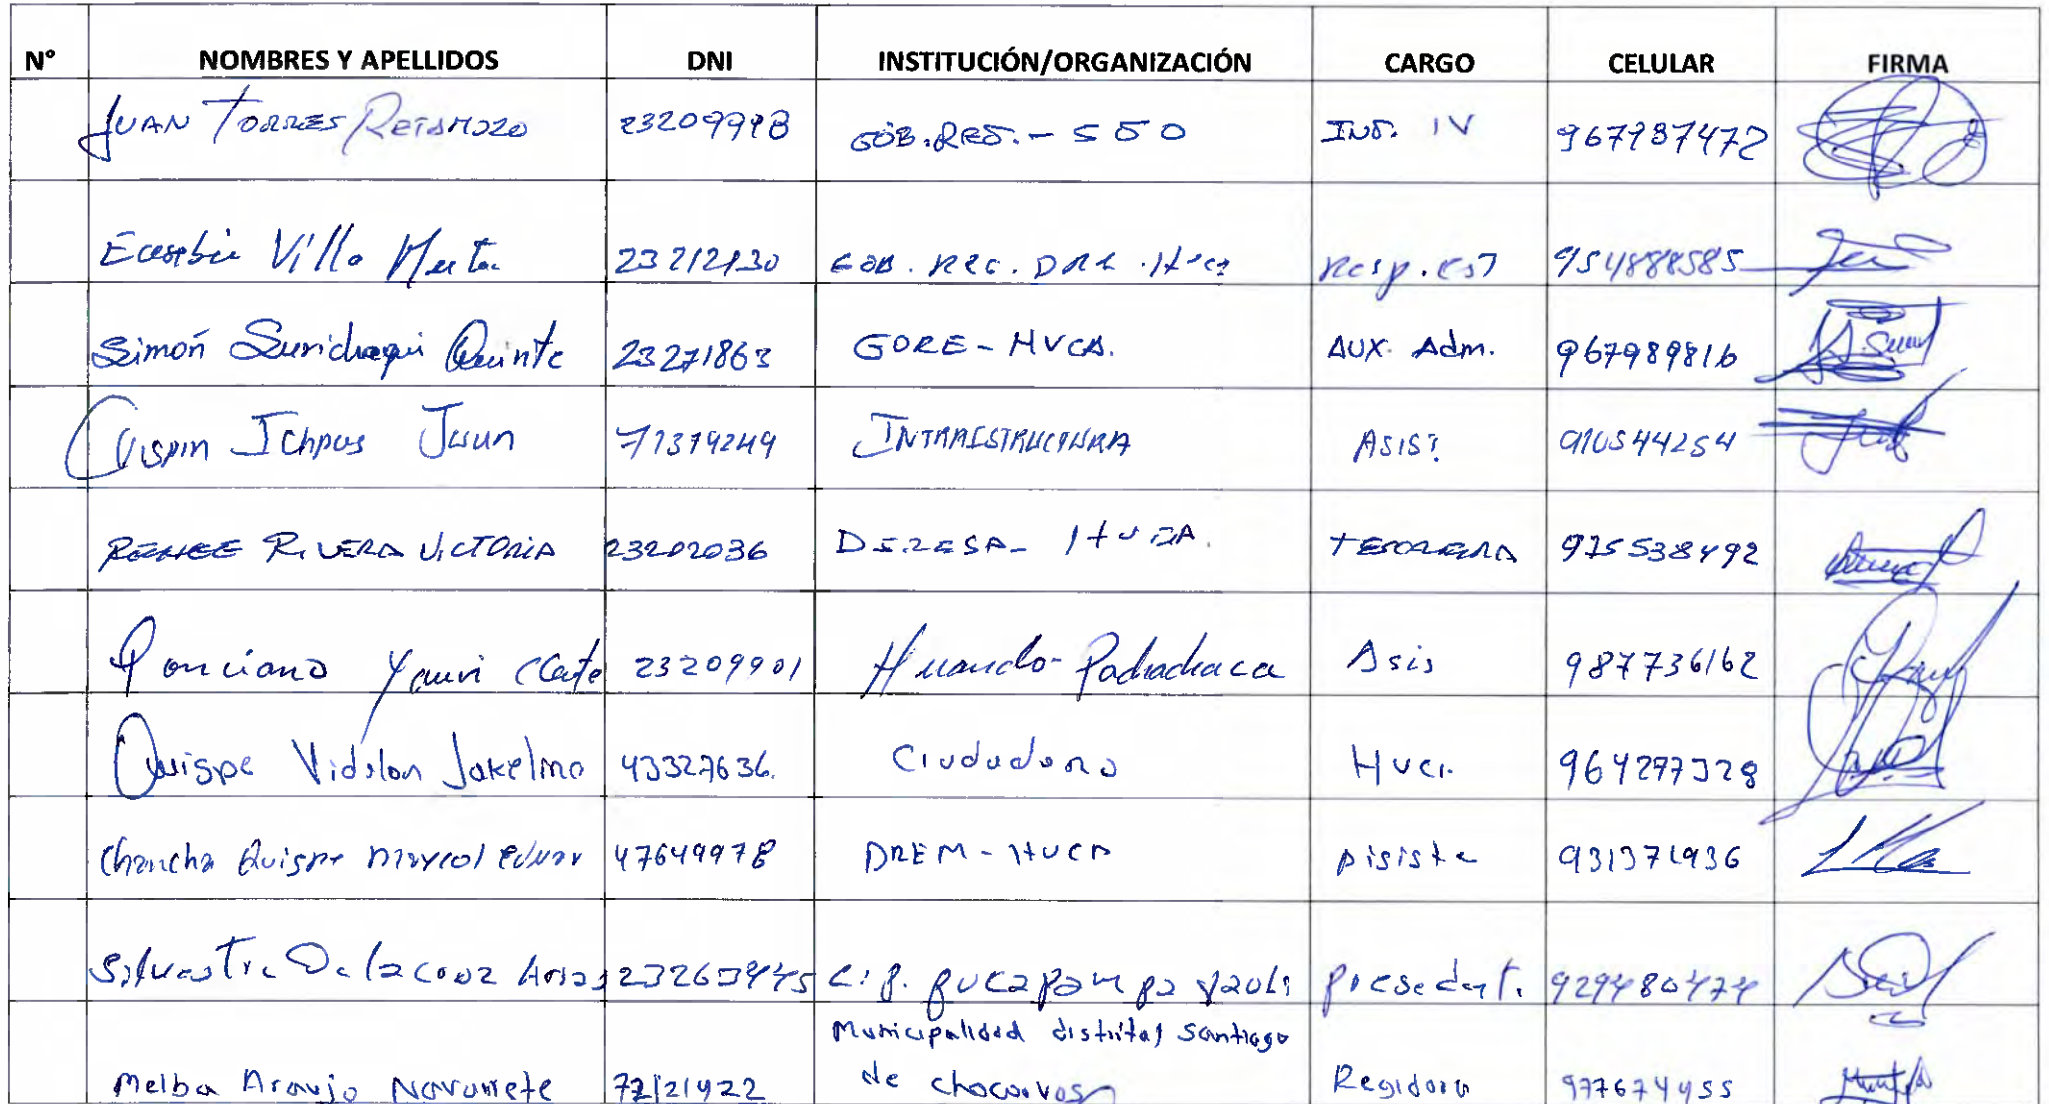 N° NOMBRES Y APELLIDOS DNI INSTITUCIÓN/ORGANIZACIÓN CARGO CELULAR FIRMA
JUAN TORRES RETAMOZO 23209998 GOB.REG.- SGO ING. IV 967987472
Villa 23212130 GOB. REG. Resp. EST 954888585
Simón Surichaqui Quinte 23271863 GORE-HVCA. AUX. Adm. 967989816
Crispin Ichpas Juan 71379249 INFRAESTRUCTURA ASIST 910544254
RIVERA VICTORIA 23202036 DIRESA- HVCA. TESORERA 975538492
Ponciano Yauri 23209901 Huando-Pachachaca Asis 987736162
Quispe Vidalon Jakelino 43327636. Ciudadano Hvca. 964297328
Chancha Quispe Marcol Eduar 47649978 DREM-HVCA Asiste 931371936
Silvestre De la Cruz Arias C.P. Pucapampa Yauli presedente
Municipalidad distrital Santiago
Melba Araujo Navarrete 72121422 de chocorvos Regidora 977674955